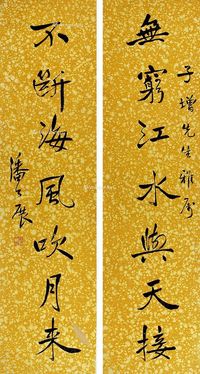 無窮江水與天接
子增先生雅屬
不斷海風吹月来
潘公展